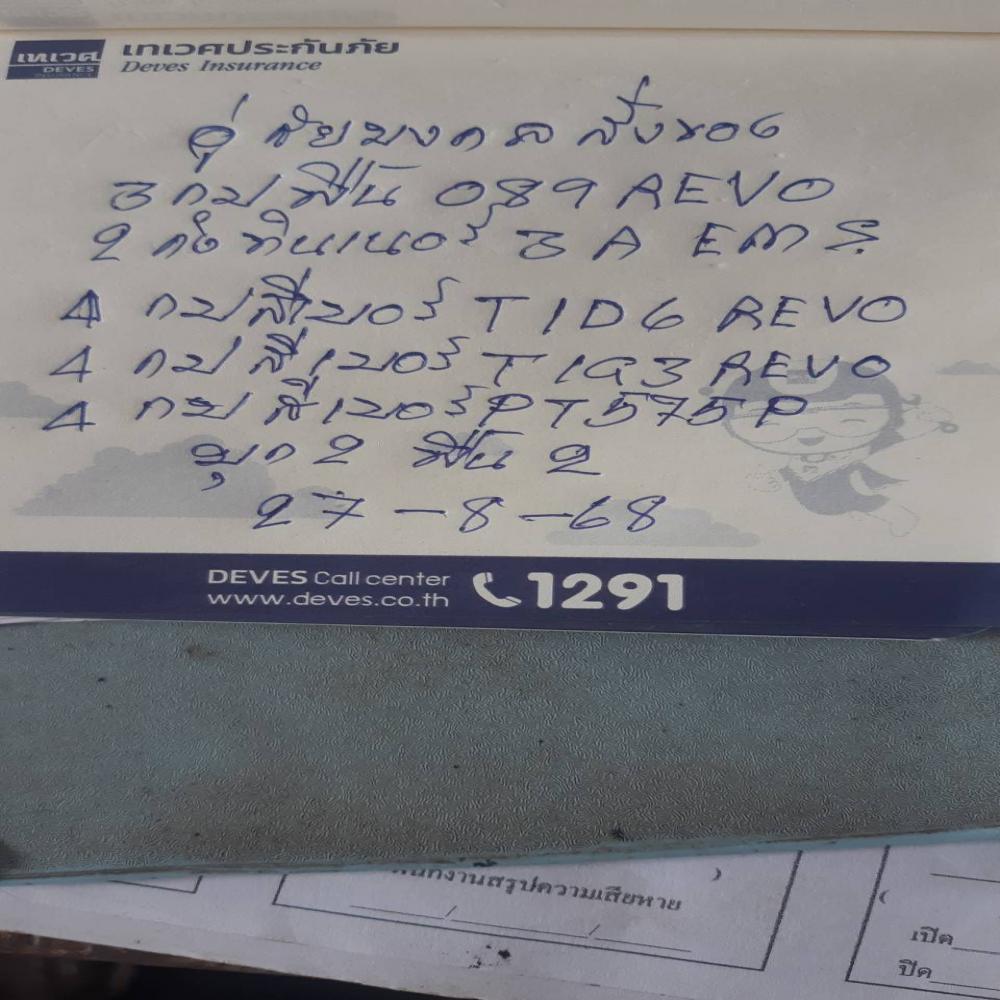 เทเวศ
DEVES
เทเวศประกันภัย
Deves Insurance
อู่ ชัยมงคล สั่งของ
3 กป ฟืัน 089 REVO
2 ถัง ทินเนอร์ 3A
4 กป สีเบอร์ T1D6 REVO
4 กป สีเบอร์ T1G3 REVO
4 กป สีเบอร์ PT575P
มุก 2 2
27-8-68
DEVES Call center
www.deves.co.th
1291
งานสรุปความเสียหาย
เปิด
ปิด